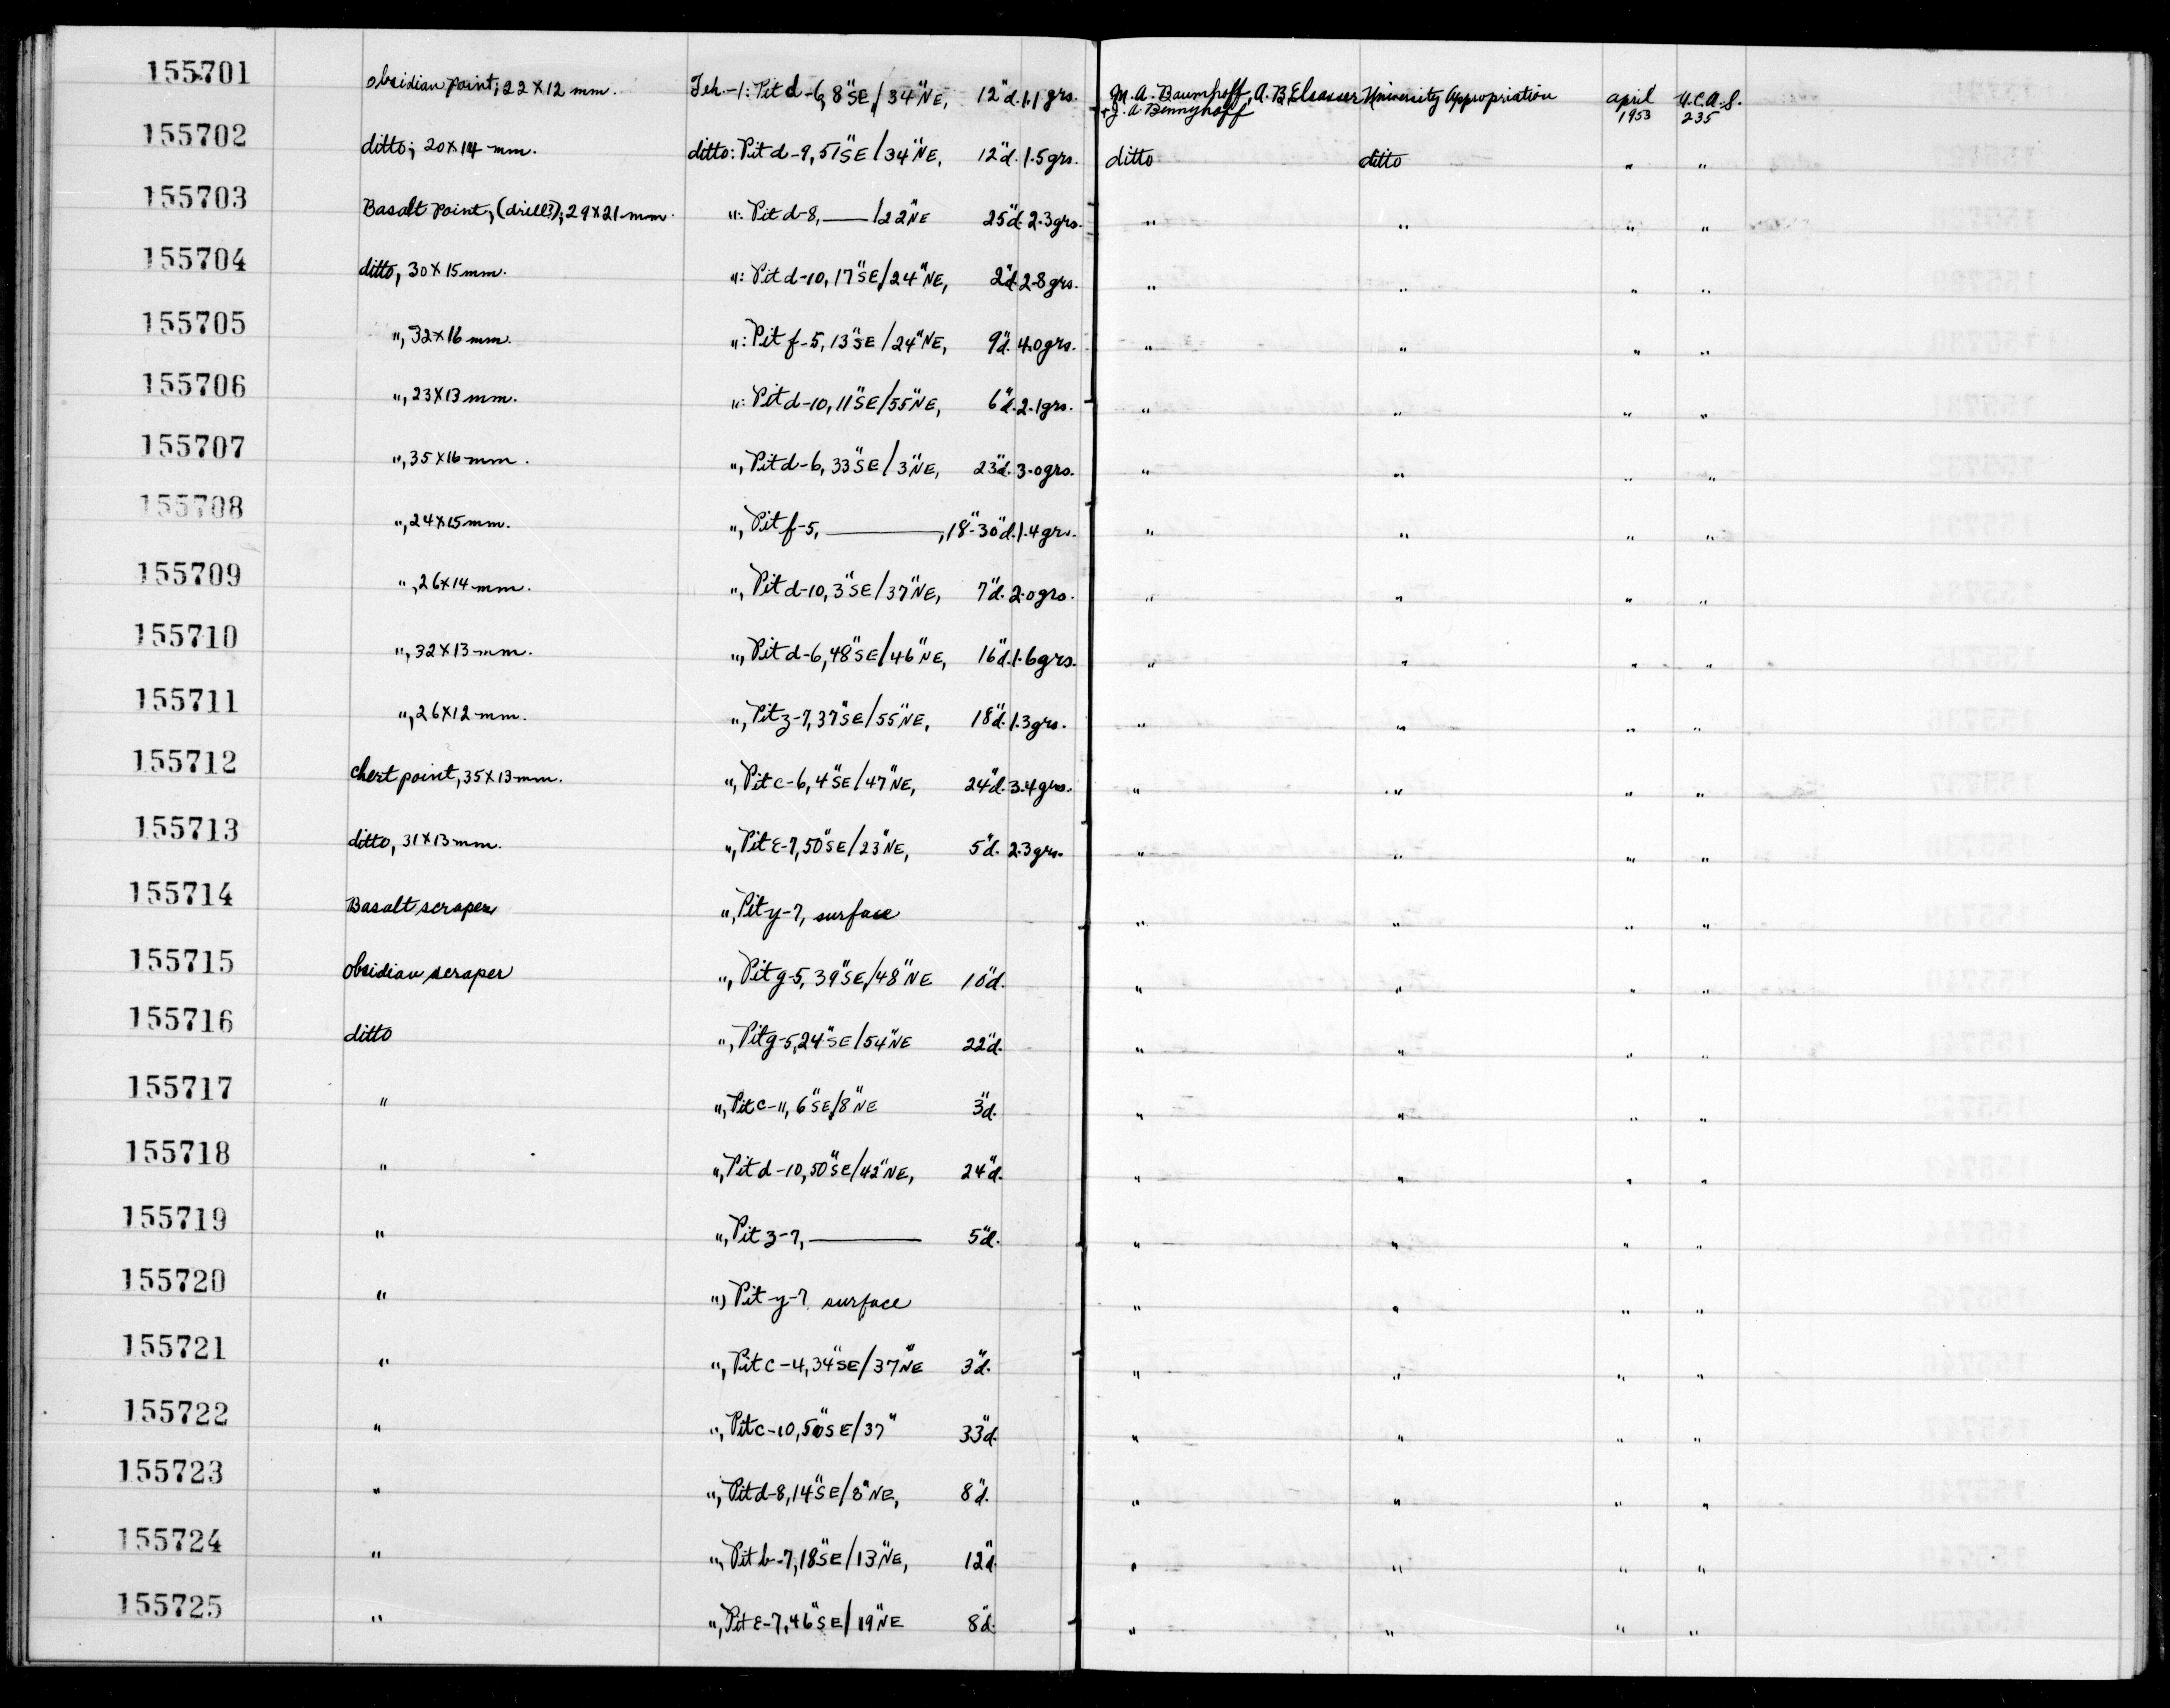 155701 obsidian point; 22 X 12 mm. Teh-1: Pit d-6, 8"SE/34"NE, 12"d. 1.1 grs. M. A. Baumhoff, A. B. Elsasser University Appropriation april U.C.A.S.
+ J. A. Bennyhoff 1953 235
155702 ditto; 20 X 14 mm. ditto: Pit d-9, 51"SE/34"NE, 12"d. 1.5 grs. ditto ditto " "
155703 Basalt point, (drill?); 29 X 21 mm. ": Pit d-8, —/22"NE 25"d. 2.3 grs. " " " "
155704 ditto, 30 X 15 mm. ": Pit d-10, 17"SE/24"NE, 2"d. 2.8 grs. " " " "
155705 ", 32 X 16 mm. ": Pit f-5, 13"SE/24"NE, 9"d. 4.0 grs. " " " "
155706 ", 23 X 13 mm. ": Pit d-10, 11"SE/55"NE, 6"d. 2.1 grs. " " " "
155707 ", 35 X 16 mm. ", Pit d-6, 33"SE/3"NE, 23"d. 3.0 grs. " " " "
155708 ", 24 X 15 mm. ", Pit f-5, ———, 18"-30"d. 1.4 grs. " " " "
155709 ", 26 X 14 mm. ", Pit d-10, 3"SE/37"NE, 7"d. 2.0 grs. " " " "
155710 ", 32 X 13 mm. ", Pit d-6, 48"SE/46"NE, 16"d. 1.6 grs. " " " "
155711 ", 26 X 12 mm. ", Pit z-7, 37"SE/55"NE, 18"d. 1.3 grs. " " " "
155712 chert point, 35 X 13 mm. ", Pit c-6, 4"SE/47"NE, 24"d. 3.4 grs. " " " "
155713 ditto, 31 X 13 mm. ", Pit E-7, 50"SE/23"NE, 5"d. 2.3 grs. " " " "
155714 Basalt scraper ", Pit y-7, surface " " " "
155715 obsidian scraper ", Pit g-5, 39"SE/48"NE 10"d. " " " "
155716 ditto ", Pit g-5, 24"SE/54"NE 22"d. " " " "
155717 " ", Pit c-11, 6"SE/8"NE 3"d. " " " "
155718 " ", Pit d-10, 50"SE/42"NE, 24"d. " " " "
155719 " ", Pit z-7, ——— 5"d. " " " "
155720 " ", Pit y-7 surface " " " "
155721 " ", Pit c-4, 34"SE/37"NE 3"d. " " " "
155722 " ", Pit c-10, 50"SE/37" 33"d. " " " "
155723 " ", Pit d-8, 14"SE/8"NE, 8"d. " " " "
155724 " ", Pit b-7, 18"SE/13"NE, 12"d. " " " "
155725 " ", Pit E-7, 46"SE/19"NE 8"d. " " " "